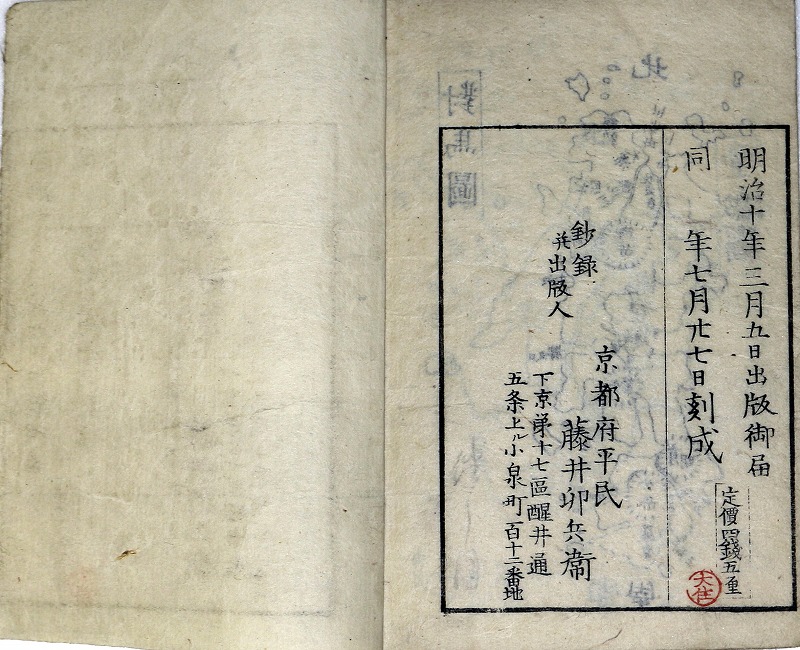 明治十年三月五日出版御届
同　年七月廿七日刻成
定價四錢五厘
大住
鈔録
并出版人
京都府平民
藤井卯兵衞
下京第十七區醒井通
五条上ル小泉町百十二番地
對馬圖
北